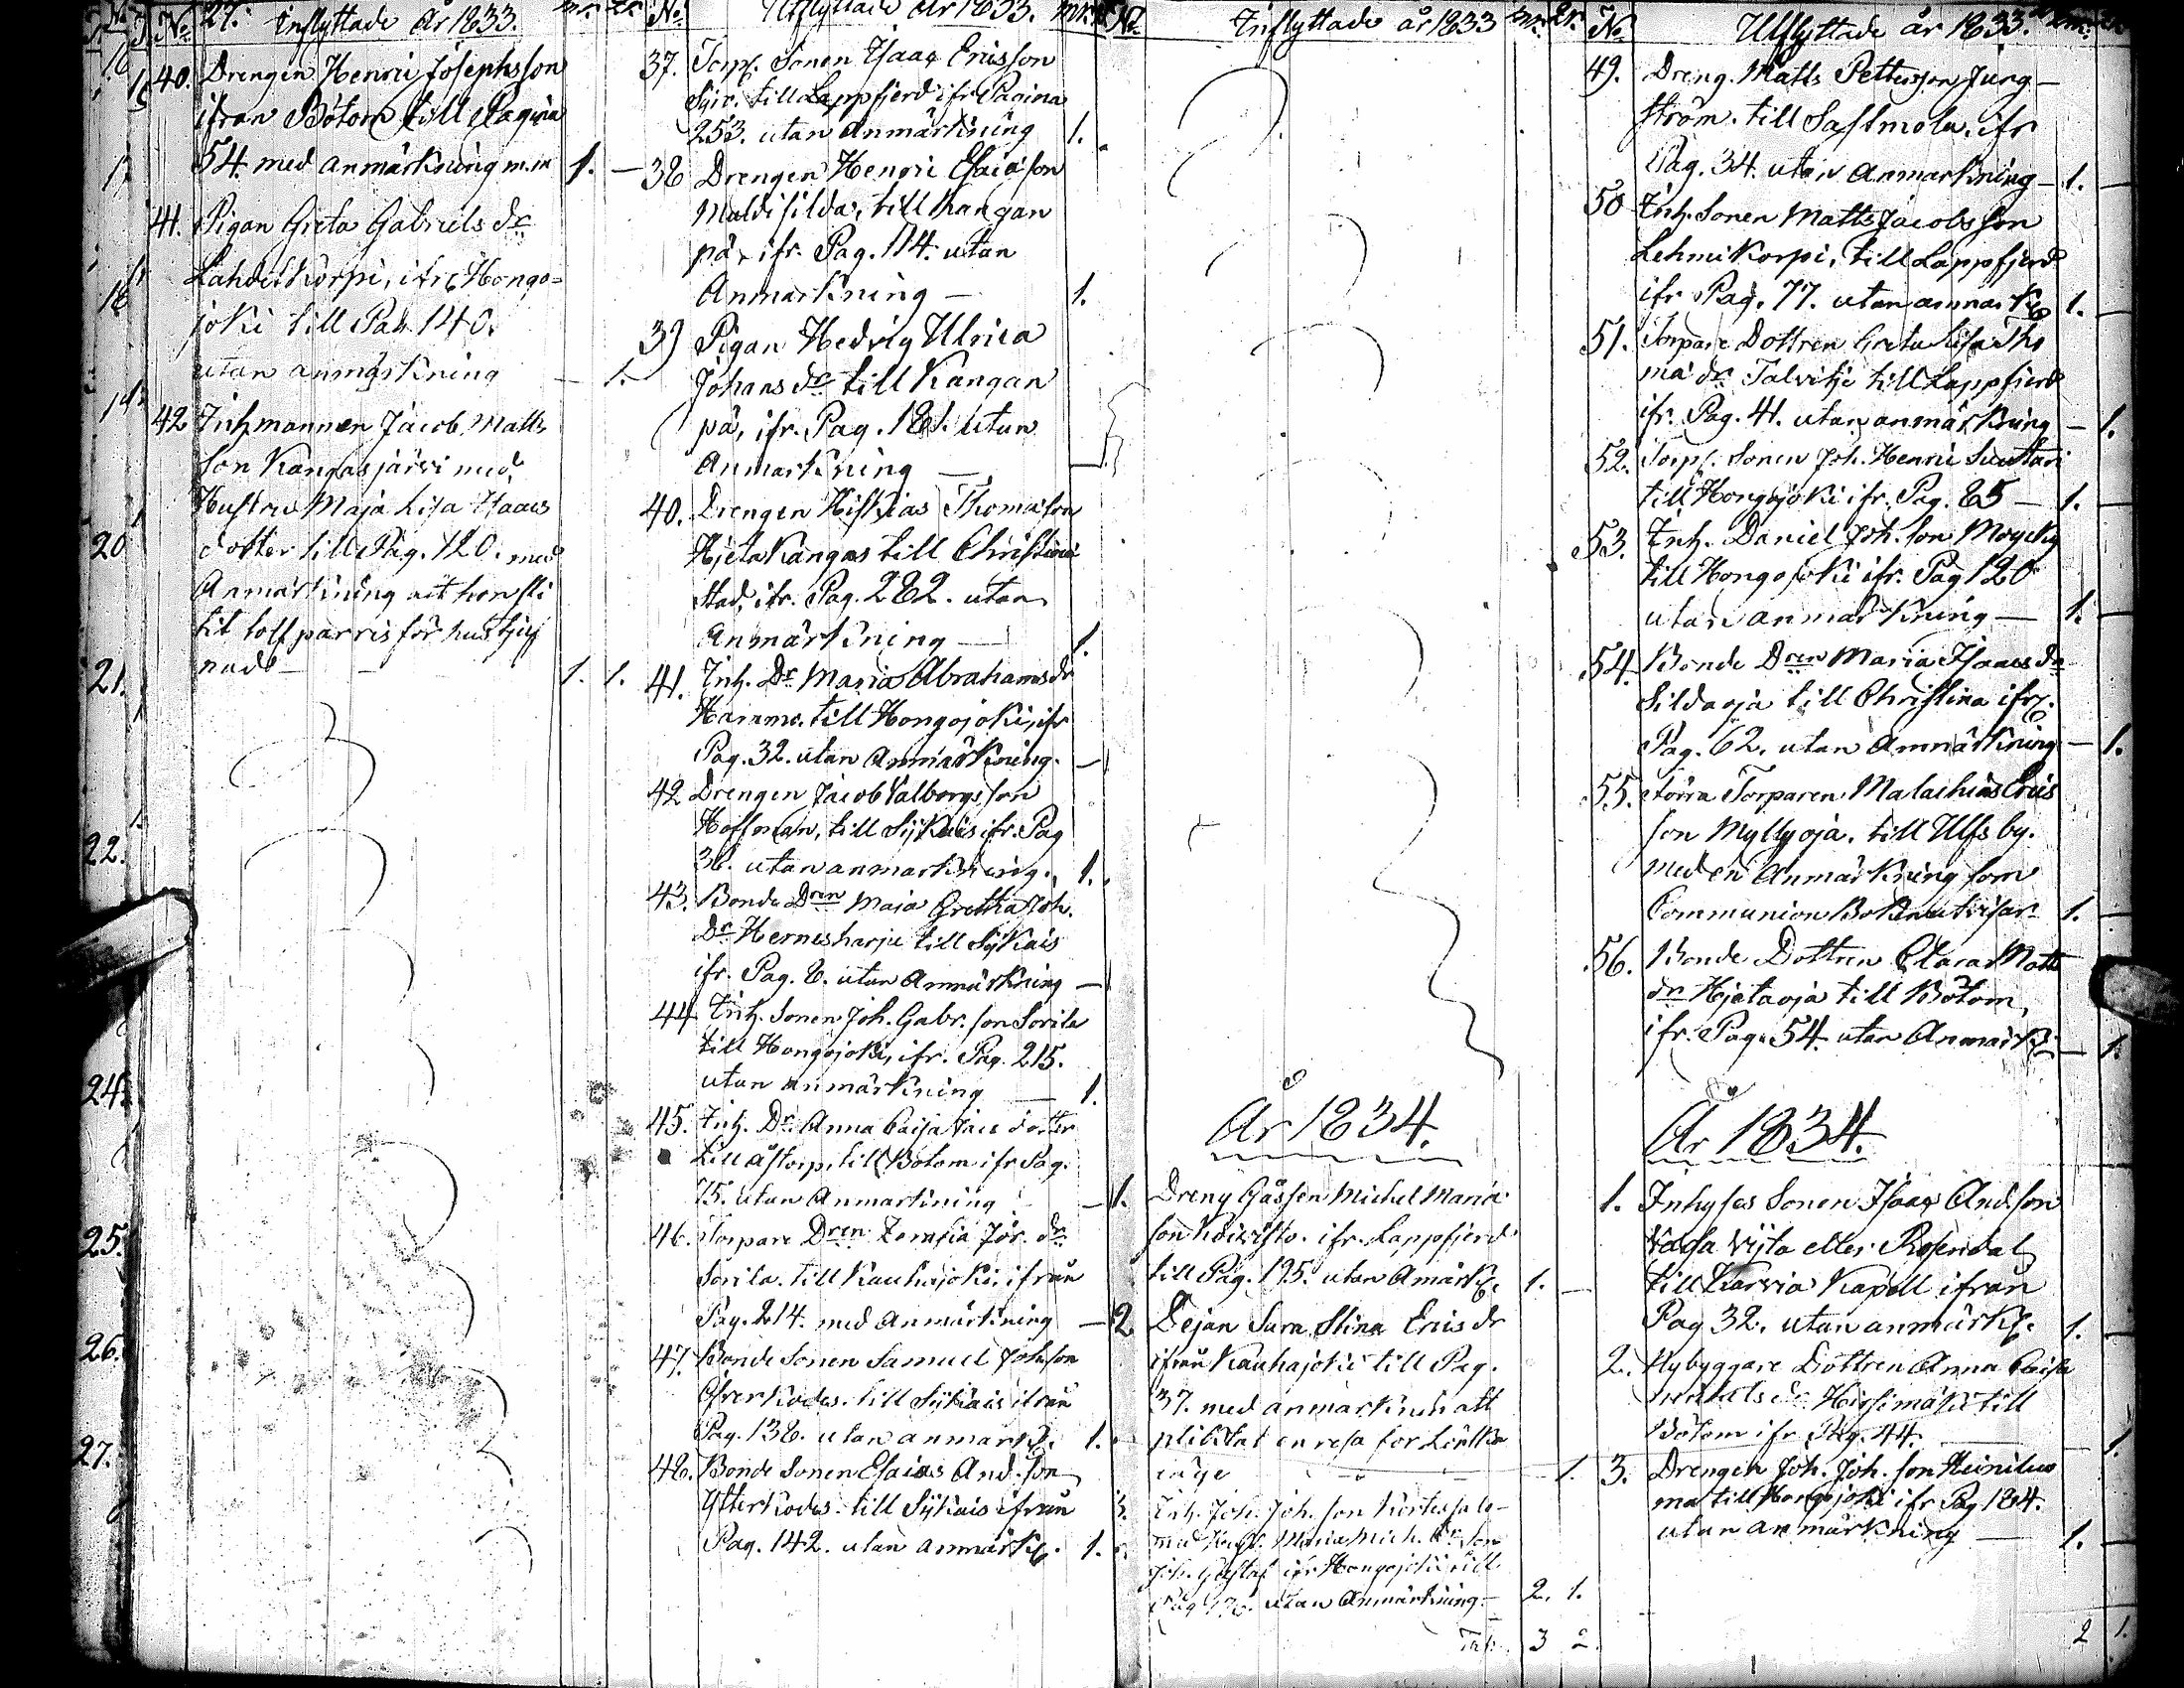 27. Inflyttade År 1833.
40. Drengen Henric Josephsson
ifrån Bötom till Pagina
54. med anmärkning m.m 1. —
41. Pigan Greta Gabriels dr
Lahdetkorpi, ifr. Hongo-
joki till Pag. 140.
utan anmärkning — 1.
42 Inh. mannen Jacob Matts
son Kangasjärvi med
Hustru Maja Lisa Isaacs
dotter till Pag. 120. med
Anmärkning att
för
1. 1.
No. Utflyttade År 1833. mk. qk.
37. Torp. Sonen Isaac Ericsson
till Lappfjerd ifr. Pagina
253. utan Anmärkning 1.
38 Drengen Henric Esaiæson
till Kangan
pä, ifr. Pag. 114. utan
Anmärkning — 1.
39 Pigan Hedvig Ulrica
Johans dr till Kangan
pä, ifr. Pag. 181. utan
Anmärkning — 1.
40. Drengen Hiskias Thomæson
Hjetakangas till Christinæ
stad, ifr. Pag. 282. utan
Anmärkning — 1.
41. Inh. Dr Maria Abrahams dr
Hammo. till Hongojoki, ifr
Pag. 32. utan Anmärkning. — 1
42 Drengen Jacob Valborgsson
Hoffman, till Sijkais ifr. Pag
38. utan anmärkning. 1.
43. Bonde Dren Maja Gretha Joh.
Dr Hernesharju till Sijkais
ifr. Pag. 8. utan Anmärkning — 1
44 Inh. Sonen Joh. Gabr. son Sorila
till Hongojoki, ifr. Pag. 215.
utan anmärkning — 1.
45. Inh. Dr Anna Caisa Jacs dotter
Lillåstorp, till Bötom ifr Pag.
75. utan Anmärkning — 1.
46. Torpare Dren Jör. dr
Sorila. till Kauhajoki, ifrån
Pag. 214. med Anmärkning —
47. Bonde Sonen Samuel Johsson
Öfverkodes. till Sijkais ifrån
Pag. 138. utan anmärk. 1.
48. Bonde Sonen Esaias And. son
Ytterkodes. till Sijkais ifrån
Pag. 142. utan anmärk. 1.
No. Inflyttade år 1833 mk. qk.
År 1834.
1. Dreng Gåssen Michel Mariæ
son Koivisto. ifr. Lappfjerd
till Pag. 195. utan Amärk. 1. —
2 Pejan Sara Stina Erics dr
ifrån Kauhajoki till Pag.
37. med anmärkning att
en resa för
— 1.
3. Inh. Joh. Joh. son
med Hust. Maria Mich. dr. Son
Joh. Gustaf ifr Hongojoki till
Pag utan Anmärkning — 2. 1.
3 2.
No. Utflyttade år 1833. mk. qk.
49. Dreng. Matts Pettersson Ljung-
ström. till Sastmola. ifr
Pag. 34. utan Anmärkning — 1. —
50 Inh. Sonen Matts Jacobsson
Lehmikorpi, till Lappfjerd
ifr Pag. 77. utan anmärk 1. —
51. Torpare Dottren Greta Lisa Tho
mæ dr Talvitje till Lappfjerd
ifr. Pag. 41. utan anmärkning — 1.
52. Torp. Sonen Joh. Henric Suutari
till Hongojoki ifr. Pag. 85 — 1.
53. Inh. Daniel Joh. son
till Hongojoki ifr. Pag 120
utan anmärkning — 1. —
54. Bonde Dren Maria Isaacs dr
Sildaoja till Christina ifr.
Pag. 62. utan Anmärkning — 1.
55. Förra Torparen Malachias Erics
son Myllyoja. till Ulfsby.
med en Anmärkning som
Communion Boken utvisar. 1. —
56. Bonde Dottren Clara Matts
dr Hjetaoja till Bötom,
ifr. Pag. 54. utan Anmärk — 1.
År 1834.
1. Inhyses Sonen Isaac And. son
eller Rosendal
till Karvia Kapell ifrån
Pag 32. utan anmärk. 1. —
2. Nybyggare Dottren Anna Caisa
till
Bötom ifr. Pag. 44. — 1.
3. Drengen Joh. Joh. son Heiniluo
ma till Hongojoki ifr Pag 184.
utan anmärkning — 1. —
2 1.